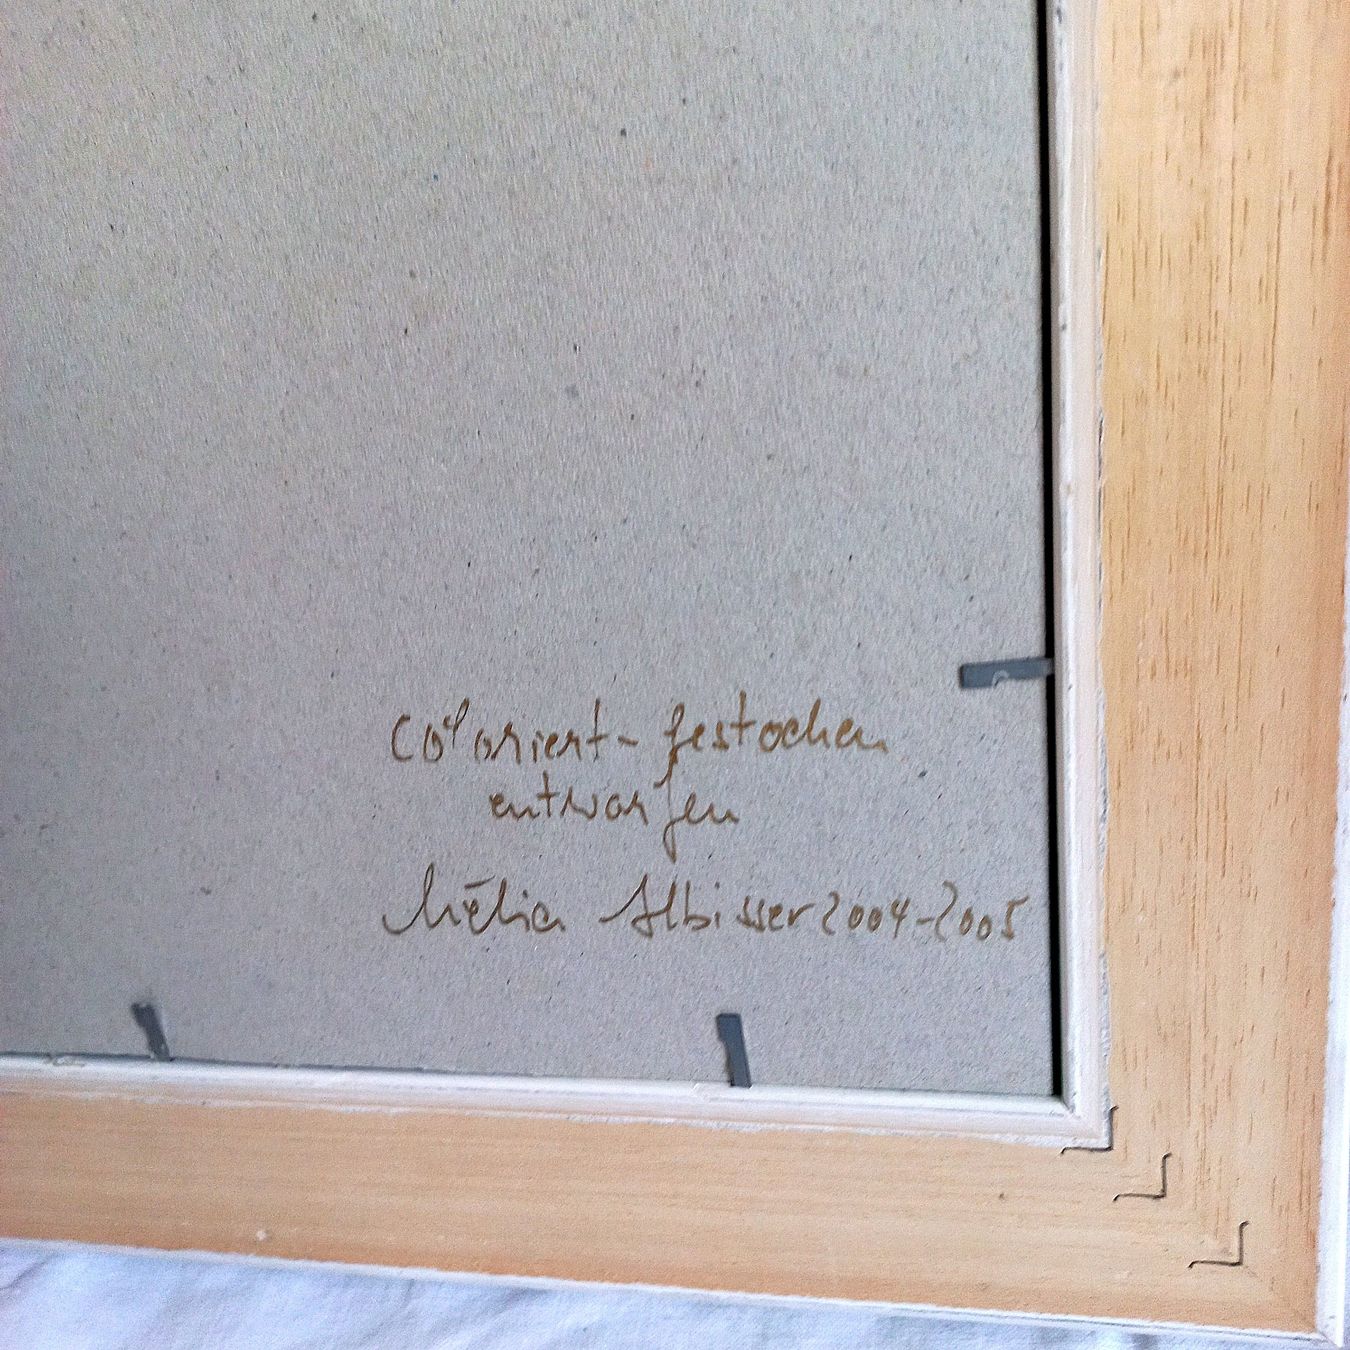 coloriert - gestochen
entworfen
Mēlia Albisser 2004-2005